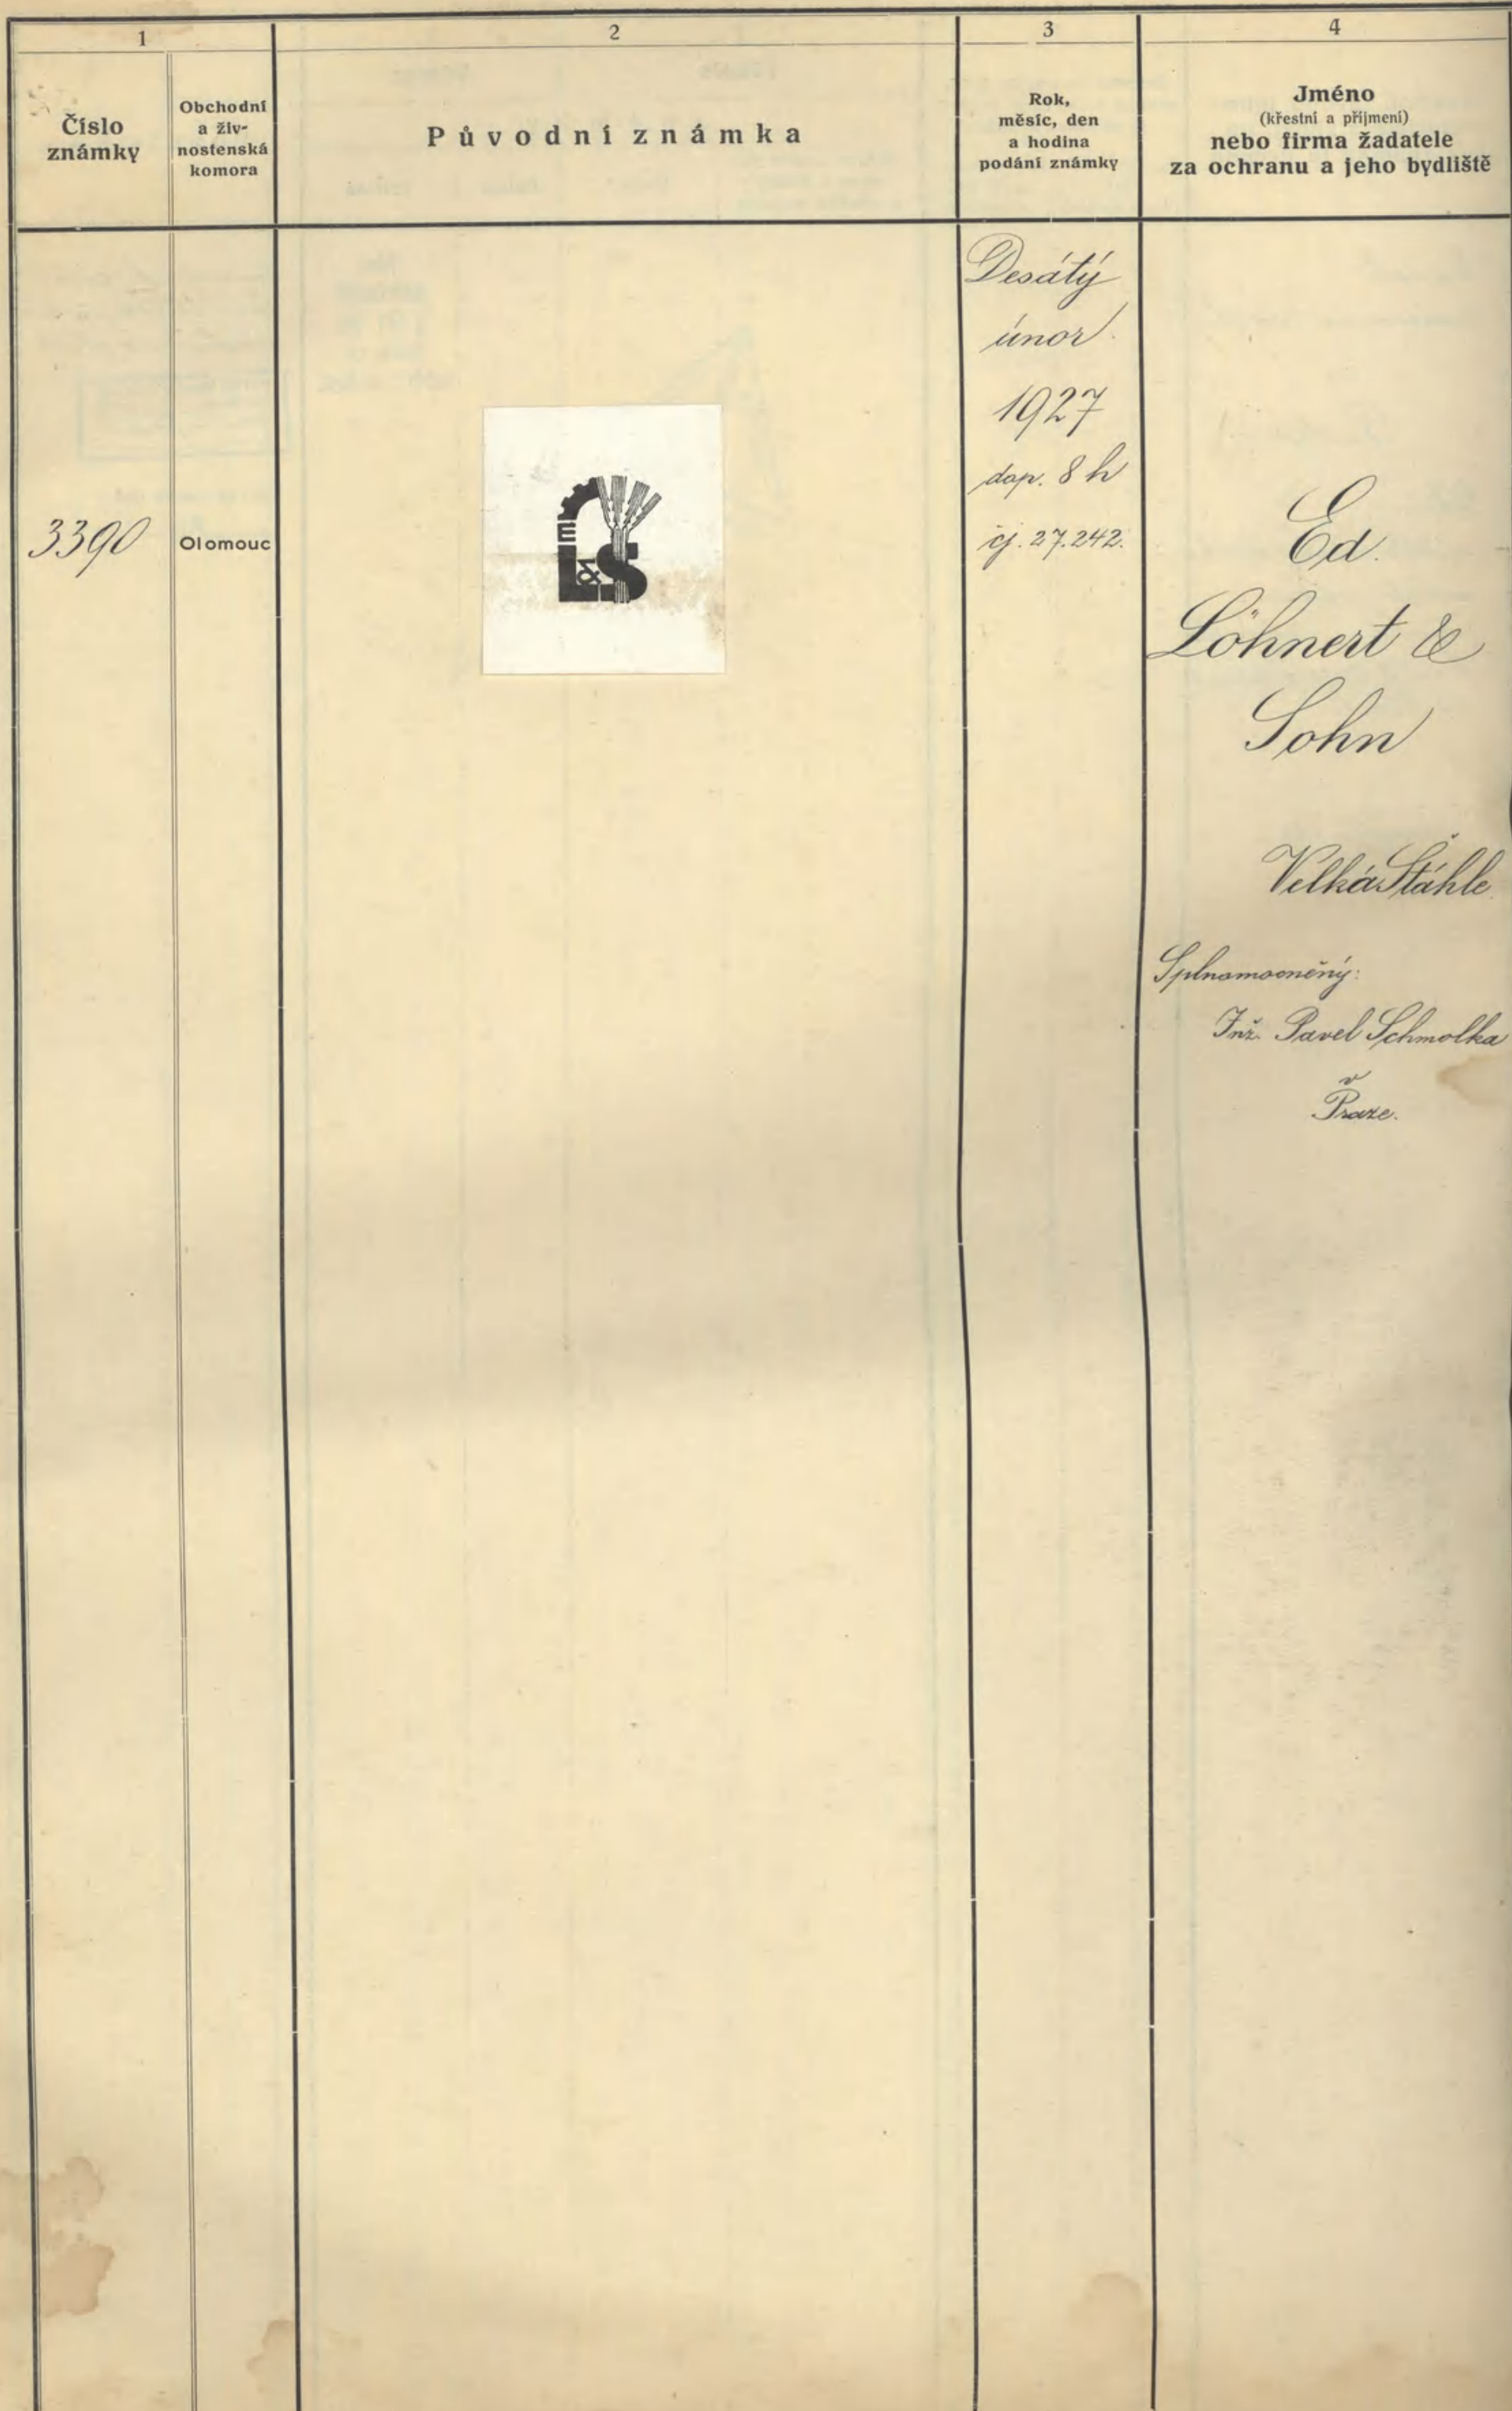 1
2
3
4
Číslo
známky
Obchodní
a živ-
nostenská
komora
Původní známka
Rok,
měsíc, den
a hodina
podání známky
Jméno
(křestní a příjmení)
nebo firma žadatele
za ochranu a jeho bydliště
3390
Olomouc
E
L&S
Desátý
únor.
1927
dop. 8 h
čj. 27.242.
Ed.
Löhnert &
Sohn
Velká Štáhle.
Splnomocněný:
Inž. Pavel Schmolka
v
Praze.